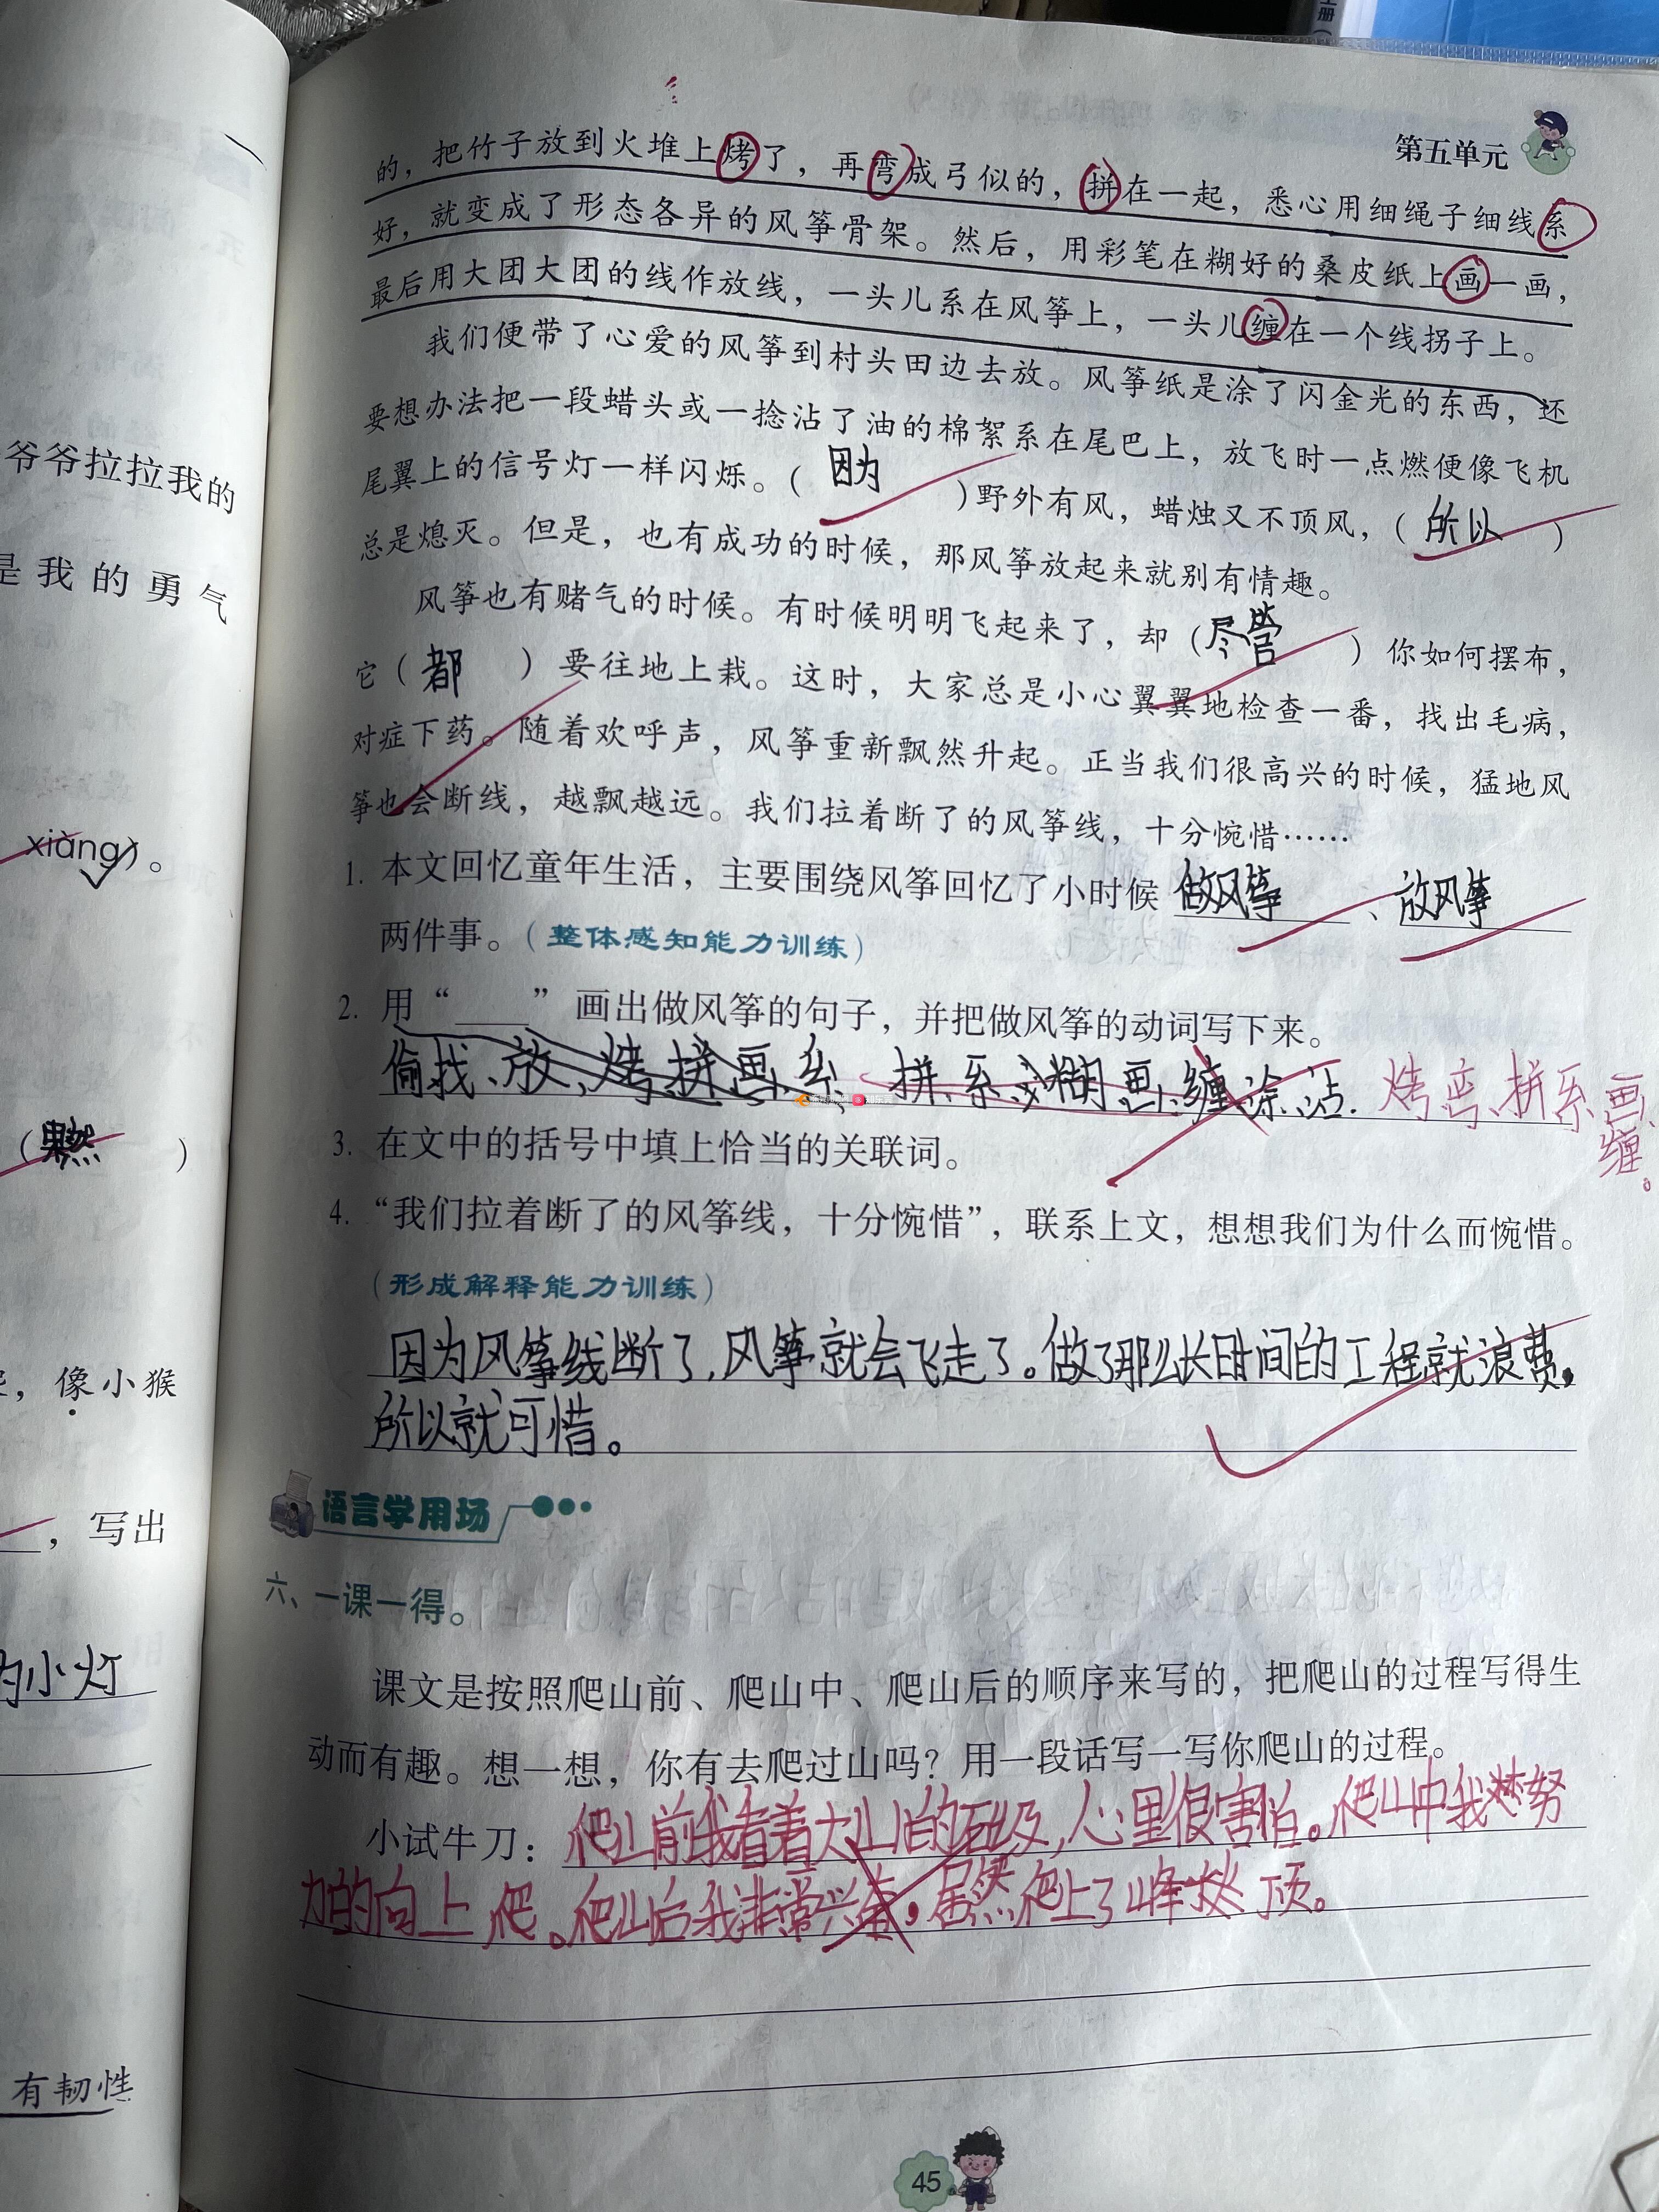 第五单元
的，把竹子放到火堆上烤了，再弯成弓似的，拼在一起，悉心用细绳子细线系
好，就变成了形态各异的风筝骨架。然后，用彩笔在糊好的桑皮纸上画一画，
最后用大团大团的线作放线，一头儿系在风筝上，一头儿缠在一个线拐子上。
我们便带了心爱的风筝到村头田边去放。风筝纸是涂了闪金光的东西，还
要想办法把一段蜡头或一捻沾了油的棉絮系在尾巴上，放飞时一点燃便像飞机
尾翼上的信号灯一样闪烁。（因为）野外有风，蜡烛又不顶风，（所以）
总是熄灭。但是，也有成功的时候，那风筝放起来就别有情趣。
风筝也有赌气的时候。有时候明明飞起来了，却（尽管）你如何摆布，
它（都）要往地上栽。这时，大家总是小心翼翼地检查一番，找出毛病，
对症下药。随着欢呼声，风筝重新飘然升起。正当我们很高兴的时候，猛地风
筝也会断线，越飘越远。我们拉着断了的风筝线，十分惋惜……
1. 本文回忆童年生活，主要围绕风筝回忆了小时候 做风筝 、放风筝
两件事。（整体感知能力训练）
2. 用“____”画出做风筝的句子，并把做风筝的动词写下来。
偷找、放、烤、拼、画、系 拼、系、糊、画、缠、涂、沾. 烤、弯、拼、系、画、
缠。
3. 在文中的括号中填上恰当的关联词。
4. “我们拉着断了的风筝线，十分惋惜”，联系上文，想想我们为什么而惋惜。
（形成解释能力训练）
因为风筝线断了，风筝就会飞走了。做了那么长时间的工程就浪费。
所以就可惜。
语言学用场
六、一课一得。
课文是按照爬山前、爬山中、爬山后的顺序来写的，把爬山的过程写得生
动而有趣。想一想，你有去爬过山吗？用一段话写一写你爬山的过程。
小试牛刀：爬山前我看着大山的石级，心里很害怕。爬山中我努
力的向上爬。爬山后我非常兴奋。居然爬上了峰顶。
45
爷爷拉拉我的
是我的勇气
xiàng）。
（果然）
，像小猴
，写出
的小灯
有韧性